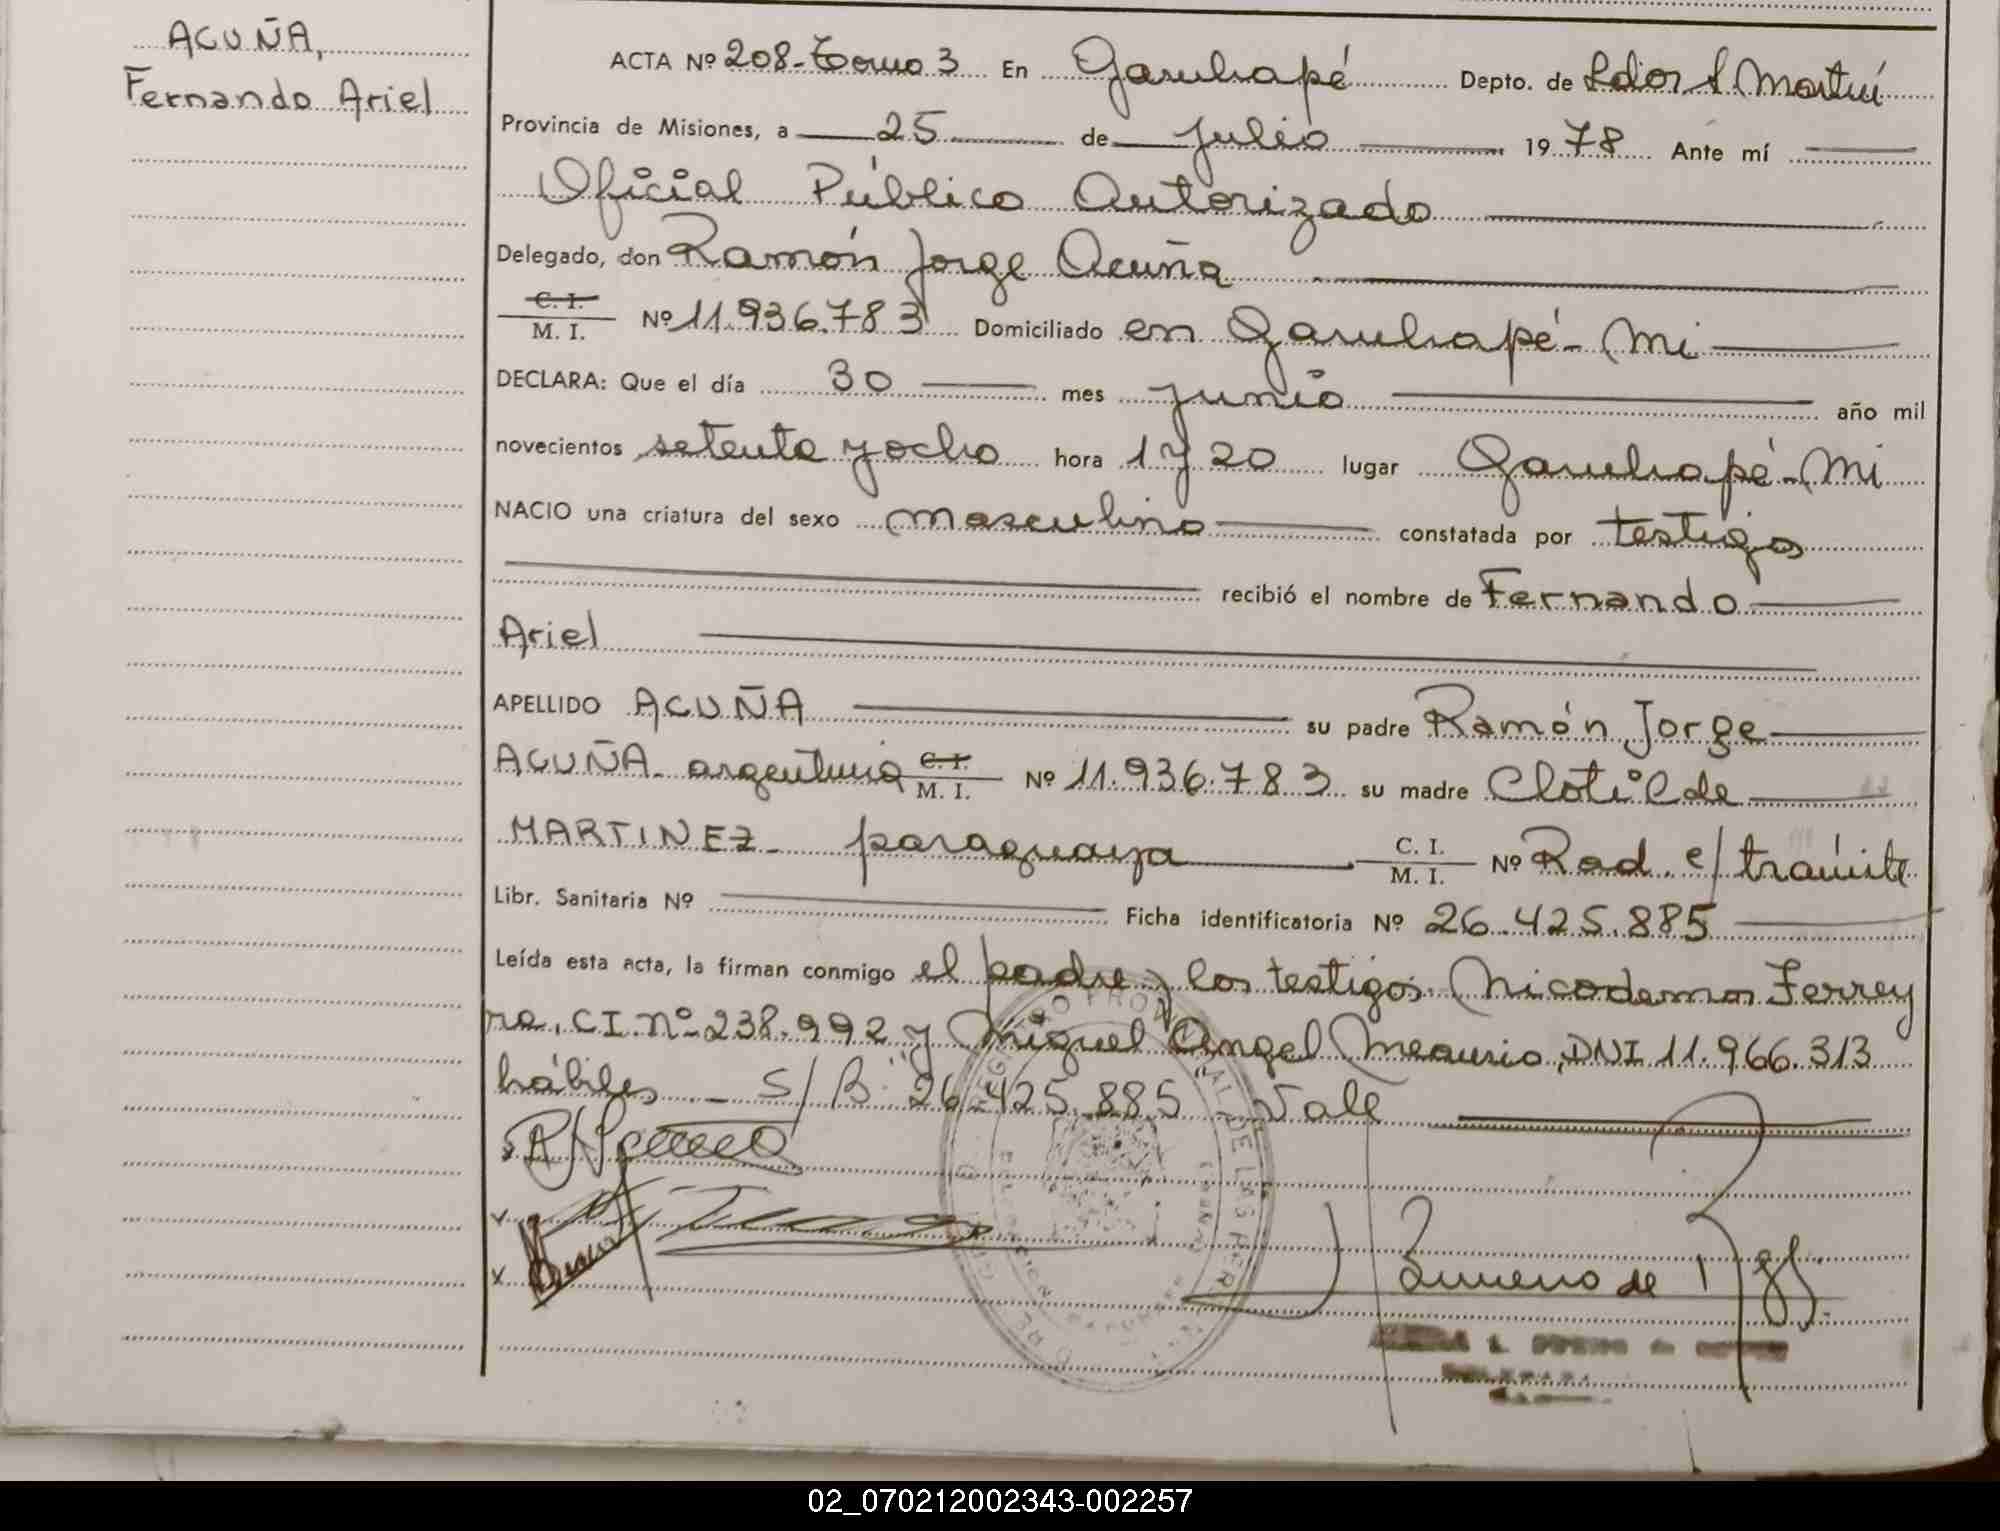 ACUÑA,
Fernando Ariel
ACTA Nº 208-Tomo 3 En Garuhapé Depto. de Ldor S. Martín
Provincia de Misiones, a 25 de Julio 1978 Ante mí
Oficial Público Autorizado
Delegado, don Ramón Jorge Acuña
C. I.
M. I. Nº 11.936.783 Domiciliado en Garuhapé-Mi
DECLARA: Que el día 30 mes junio año mil
novecientos setenta y ocho hora 1 y 20 lugar Garuhapé-Mi
NACIO una criatura del sexo masculino constatada por testigos
recibió el nombre de Fernando
Ariel
APELLIDO ACUÑA su padre Ramón Jorge
ACUÑA- argentino C. I. M. I. Nº 11.936.783 su madre Clotilde
MARTINEZ- paraguaya C. I. M. I. Nº Rad. e/ trámite
Libr. Sanitaria Nº Ficha identificatoria Nº 26.425.885
Leída esta acta, la firman conmigo el padre y los testigos Nicodemos Ferrey
ra, C.I. nº 238.992 y Miguel Angel Meaurio, DNI 11.966.313
hábiles - S/B: 26.425.885 - Vale
02_070212002343-002257